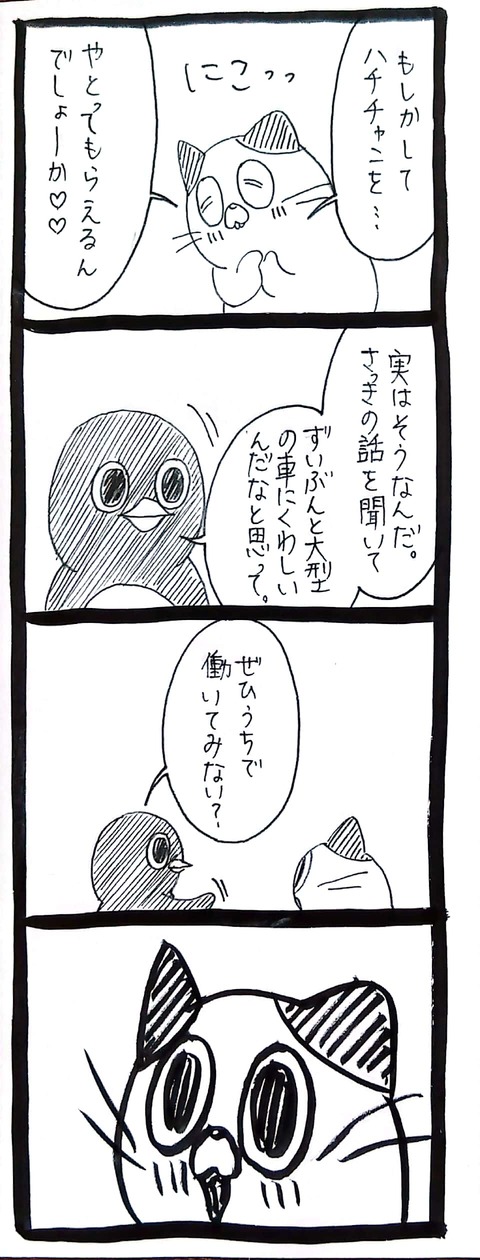 もしかして
ハチチャンを…
にこっっ
やとってもらえるん
でしょーか♡♡
実はそうなんだ。
さっきの話を聞いて
ずいぶんと大型
の車にくわしい
んだなと思って。
ぜひうちで
働いてみない？